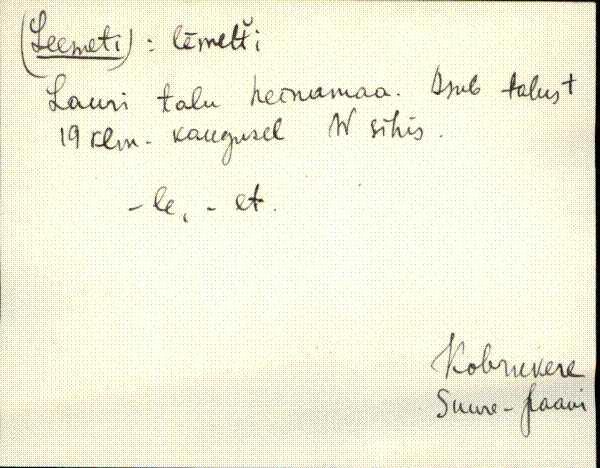 (Leemeti) : lēmett̆i
Lauri talu heinamaa. Asub talust
19 klm. kaugusel W sihis.
- le, - et.
Kobruvere
Suure-Jaani